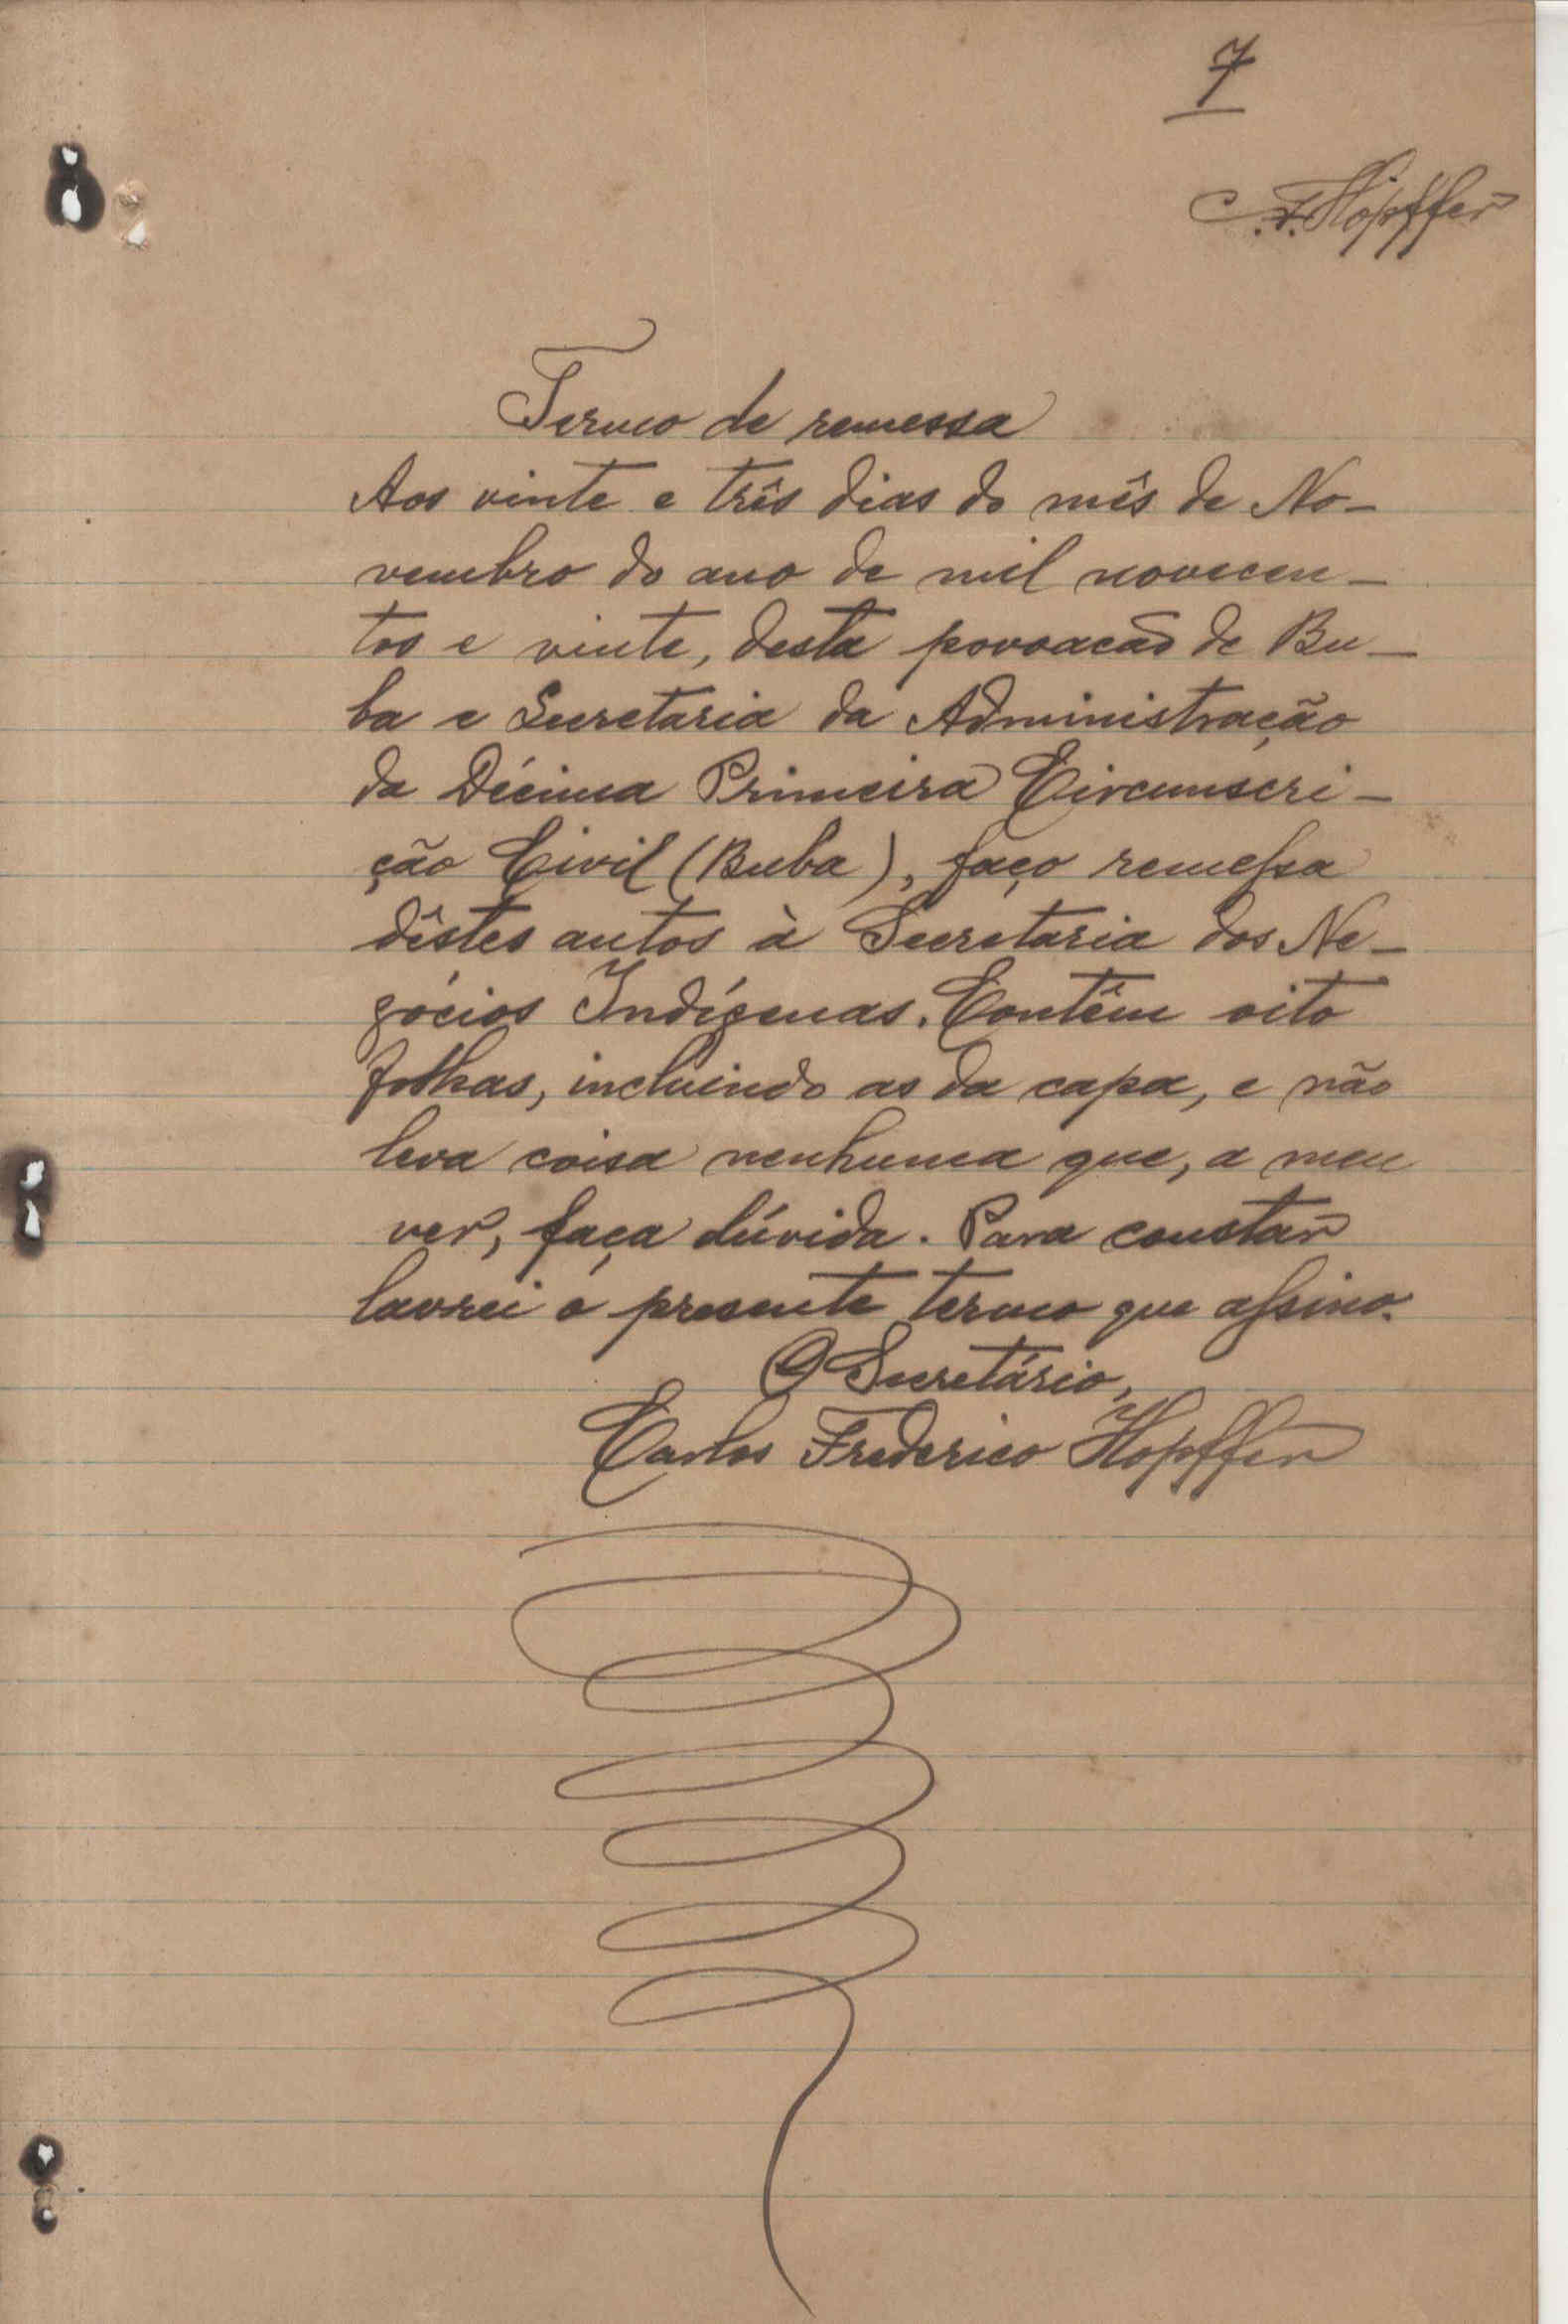 7
C.F. Hopffer
Termo de remessa
Aos vinte e três dias do mês de No-
vembro do ano de mil novecen-
tos e vinte, desta povoacão de Bu-
ba e Secretaria da Administração
da Décima Primeira Circumscri-
ção Civil (Buba), faço remessa
dêstes autos à Secretaria dos Ne-
gócios Indígenas. Contêm oito
folhas, incluindo as da capa, e não
leva coisa nenhuma que, a meu
ver, faça dúvida. Para constar
lavrei o presente termo que assino.
O Secretário,
Carlos Frederico Hopffer